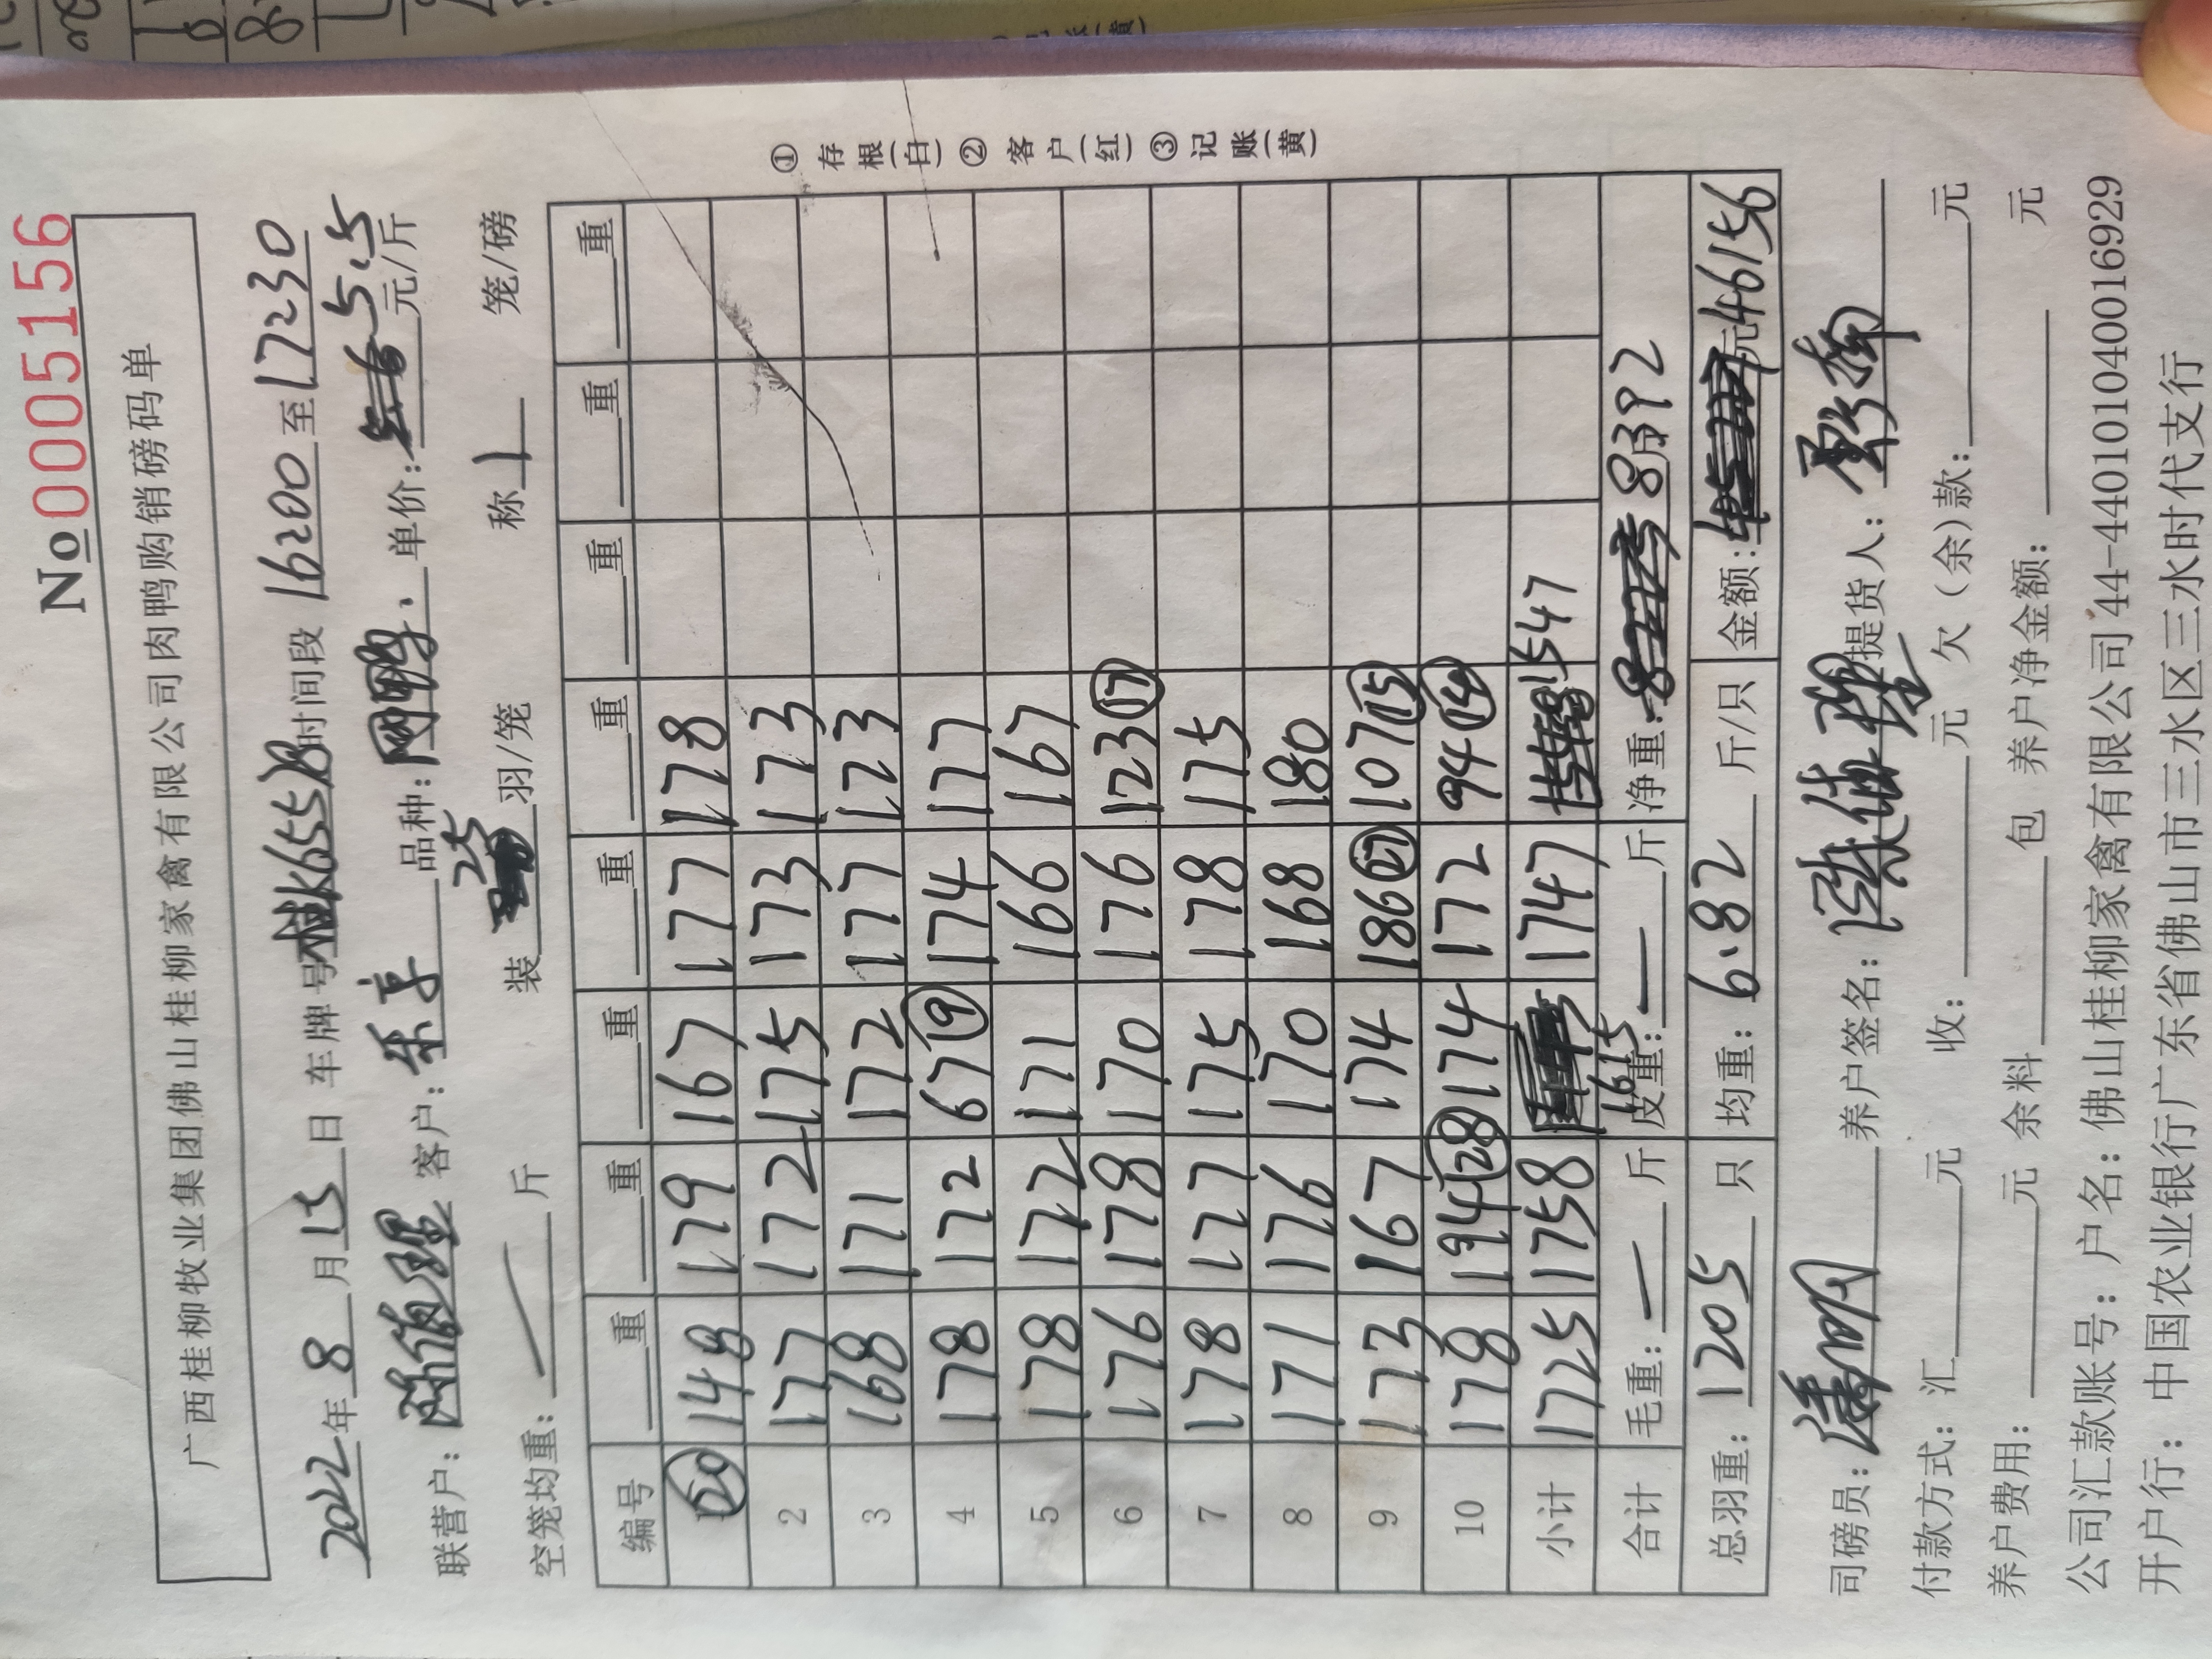 No 0005156
广西桂柳牧业集团佛山桂柳家禽有限公司肉鸭购销磅码单
2022年8月15日 车牌号桂K655 时间段16200至17230
联营户： 客户：乐享 品种： 单价：5.5元/斤
空笼均重：斤 装25羽/笼 称1笼/磅
编号 重 重 重 重 重 重 重
20 148 179 167 177 178
2 177 172 175 173 173
3 168 171 172 177 173
4 178 172 67⑨ 174 177
5 178 172 171 166 167
6 176 178 170 176 123⑰
7 178 177 175 178 175
8 171 176 170 168 180
9 173 167 174 186㉗ 107⑮
10 178 194㉘ 174 172 94⑭
小计 1725 1758 1615 1747 1547
合计 毛重：一斤 皮重：一斤 净重：8392斤
总羽重：1205只 均重：6.82斤/只 金额：元46156
司磅员： 养户签名： 提货人：
付款方式：汇元 收：元 欠（余）款：元
养户费用：元 余料包 养户净金额：元
公司汇款账号：户名：佛山桂柳家禽有限公司44-440101040016929
开户行：中国农业银行广东省佛山市三水区三水时代支行
①存根(白)②客户(红)③记账(黄)